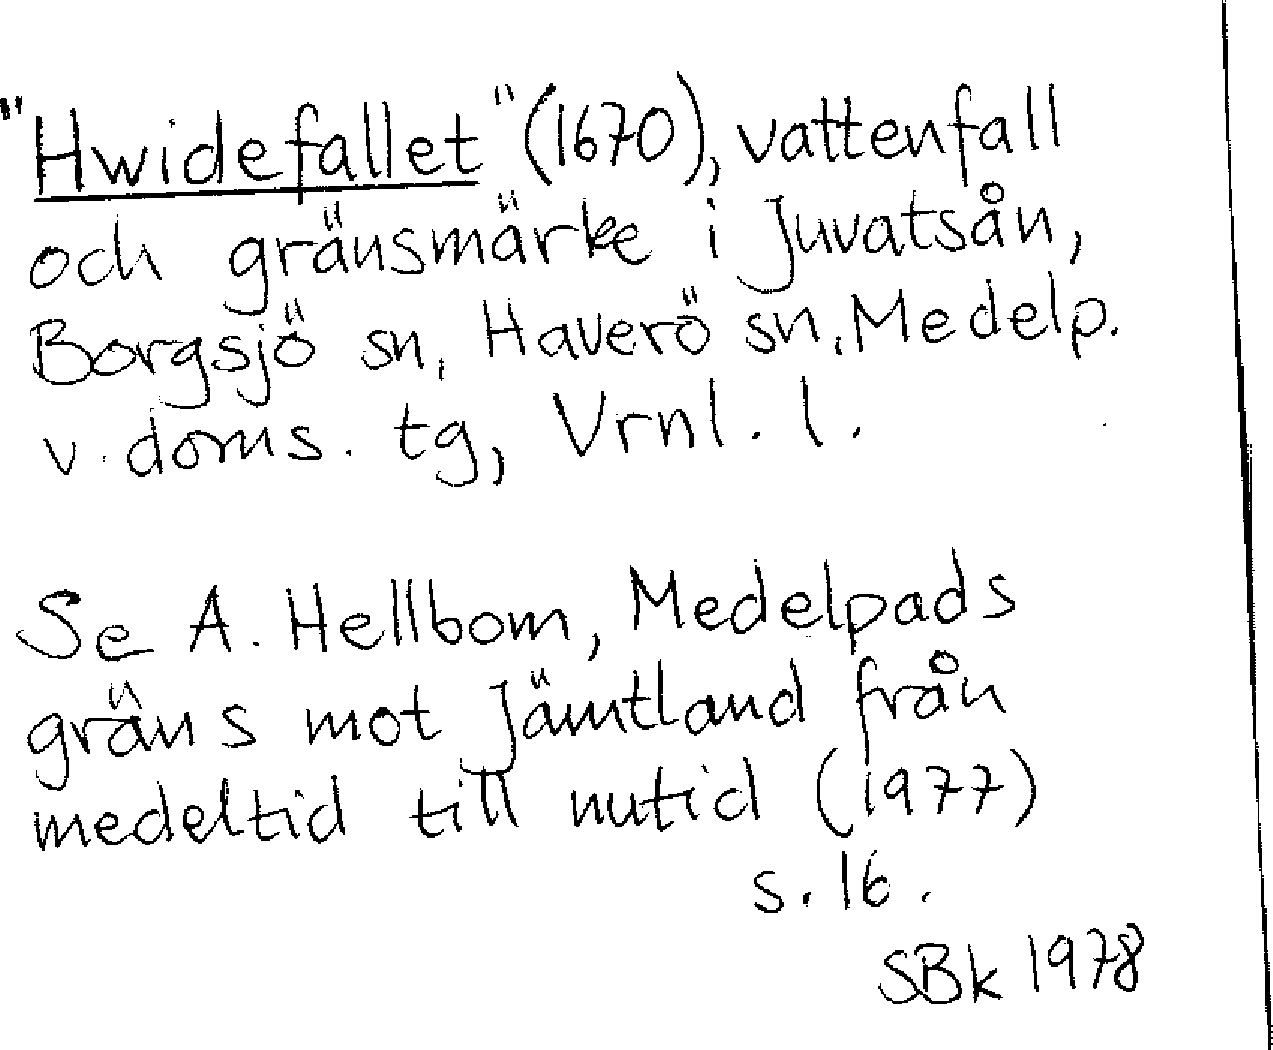 "Hwidefallet" (1670), vattenfall
och gränsmärke i Juvatsån,
Borgsjö sn, Haverö sn, Medelp.
v. doms. tg, Vrnl. l.
Se A. Hellbom, Medelpads
gräns mot Jämtland från
medeltid till nutid (1977)
s. 16.
SBk 1978